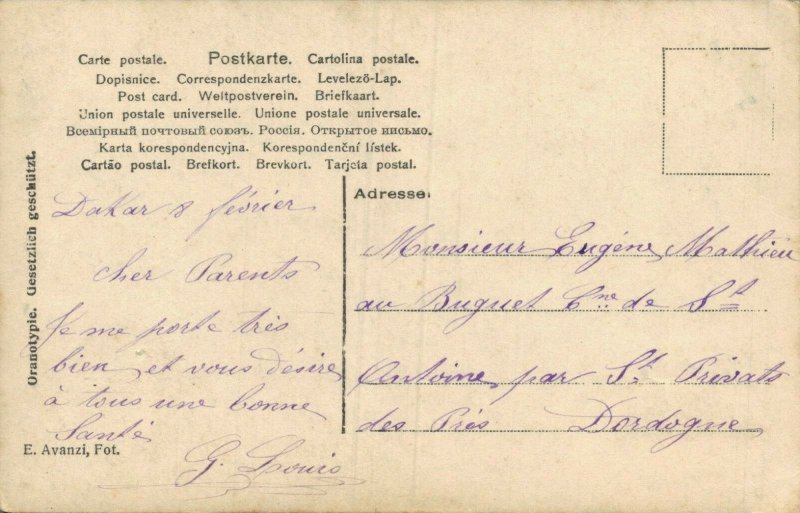 Carte postale. Postkarte. Cartolina postale.
Dopisnice. Correspondenzkarte. Levelező-Lap.
Post card. Weltpostverein. Briefkaart.
Union postale universelle. Unione postale universale.
Всемірный почтовый союзъ. Россія. Открытое письмо.
Karta korespondencyjna. Korespondenční lístek.
Cartão postal. Brefkort. Brevkort. Tarjeta postal.
Oranotypie. Gesetzlich geschützt.
Dakar 8 février
cher Parents
Je me porte très
bien et vous désire
à tous une bonne
Santé
G. Louis
E. Avanzi, Fot.
Adresse.
Monsieur Eugéne Mathieu
au Buguet Cne de St
Antoine par St Privats
des Prés Dordogne